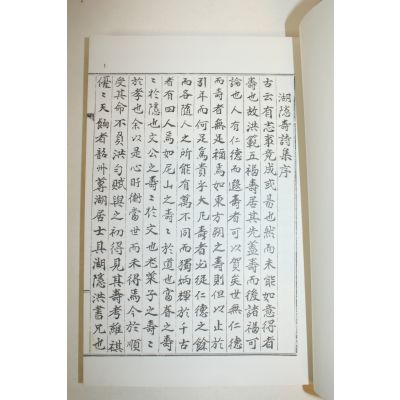 湖隱壽詩集序
古云有志事竟成或易也然而未能如意得者
壽也故洪範五福壽居其先蓋壽而後諸福可
論也人有仁德而遐壽者可以賀矣世無仁德
而壽者無足稱焉如東方朔之壽則但以止於
引年而何足爲貴乎大凡壽者必從仁德之餘
而各隨人之所能有萬不同而獨炳輝於千古
者有四人焉如尼山之壽〻於道也富春之壽
〻於隱也文公之壽〻於文也老萊子之壽〻
於孝也余以是心旰尋當世而未得焉今於順
受其命不負洪勻賦與之初得見其壽考維祺
優〻天餉者韶州尊湖居士其湖隱洪書兄也